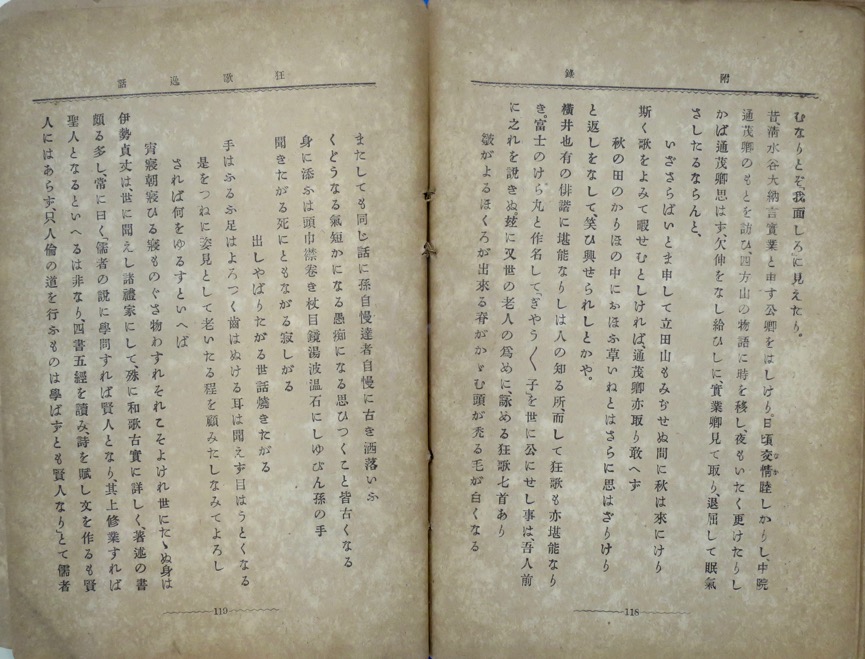 附錄
むなりとぞ、「我面しろ」に見えたり。
昔淸水谷大納言實業と申す公卿をはしけり。日頃交情睦しかりし、中院
通茂卿のもとを訪ひ、四方山の物語に時を移し、夜もいたく更けたりし
かば通茂卿思はす欠伸をなし給ひしに、實業卿見て取り、退屈して眠氣
さしたるならんと、
いざさらばいとま申して立田山もみぢせぬ間に秋は來にけり
斯く歌をよみて暇せむとしければ、通茂卿亦取り敢へす
秋の田のかりほの中におほふ草いねとはさらに思はざりけり
と返しをなして、笑ひ興せられしとかや。
橫井也有の俳諧に堪能なりしは人の知る所、而して狂歌も亦堪能なり
き。富士のけら丸と作名して「ぎやう〳〵子」を世に公にせし事は、吾人前
に之れを說きぬ。玆に又世の老人の爲めに、詠める狂歌七首あり
皺がよるほくろが出來る脊がかゞむ頭が禿る毛が白くなる
118
狂歌逸話
手はふるふ足はよろつく齒はぬける耳は聞えす目はうとくなる
身に添ふは頭巾襟卷き杖目鏡湯波温石にしゆびん孫の手
聞きたがる死にともながる寂しがる
出しやばりたがる世話燒きたがる
くどうなる氣短かになる愚痴になる思ひつくこと皆古くなる
またしても同じ話に孫自慢達者自慢に古き洒落いふ
是をつねに姿見として老いたる程を顧みたしなみてよろし
されば何をゆるすといへば
宵寢朝寢ひる寢ものぐさ物わすれそれこそよけれ世にたゝぬ身は
伊勢貞丈は、世に聞えし諸禮家にして、殊に和歌古實に詳しく、著述の書
頗る多し、常に曰く、「儒者の說に學問すれば賢人となり、其上修業すれば
聖人となるといへるは非なり、四書五經を讀み、詩を賦し文を作るも賢
人にはあらす、只人倫の道を行ふものは學ばすとも賢人なり」とて儒者
119